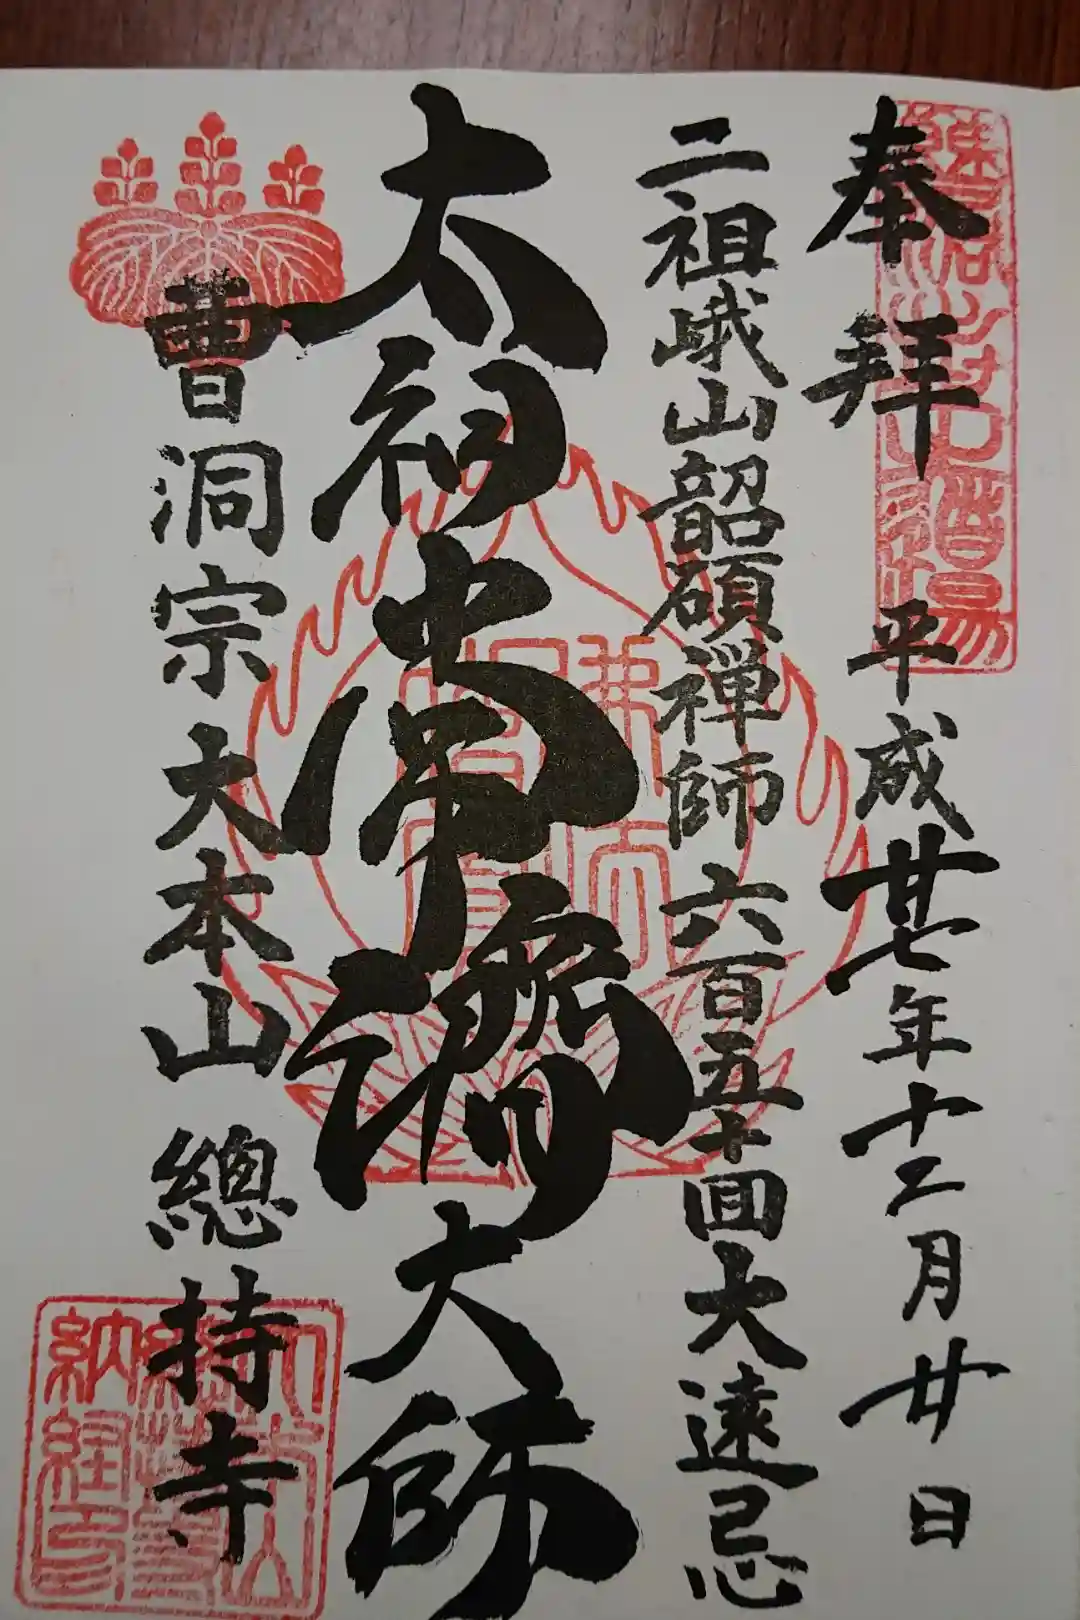 奉拜 平成廿七年十二月廿日
二祖峨山韶碩禅師六百五十回大遠忌
太祖常濟大師
曹洞宗大本山 總持寺
納経印